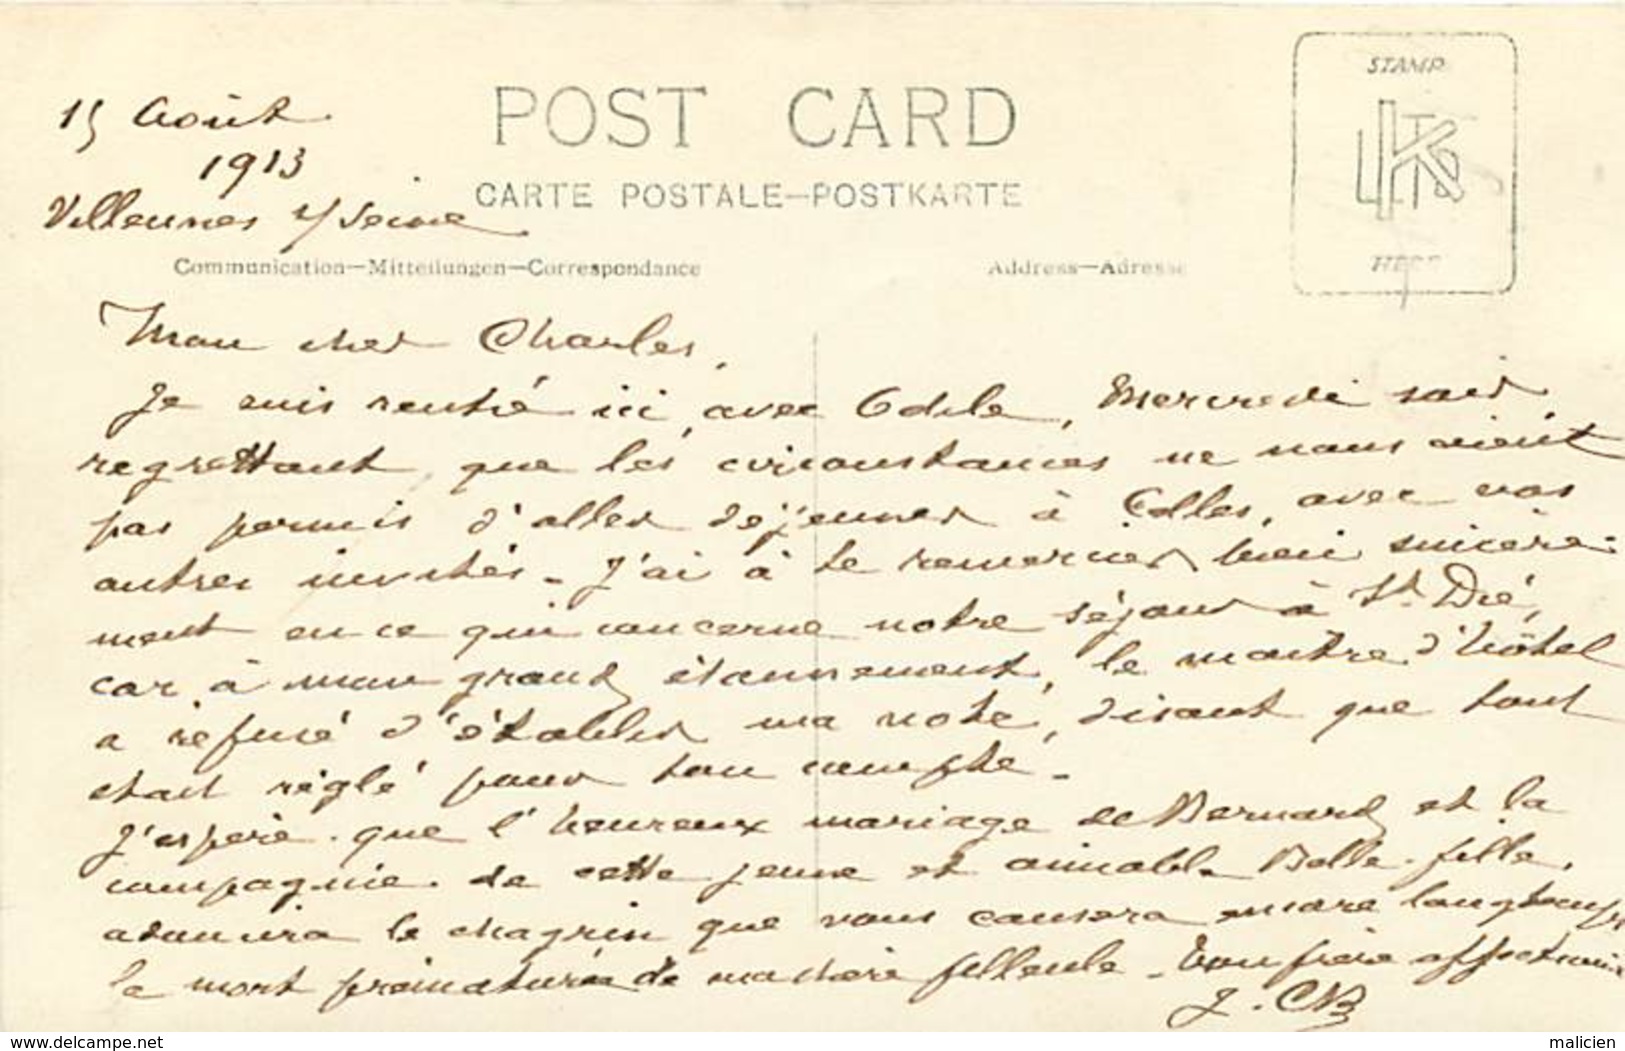 15 Août
1913
Villennes s/ Seine
POST CARD
CARTE POSTALE—POSTKARTE
Communication—Mitteilungen—Correspondance
Address—Adresse
STAMP
HERE
Mon cher Charles,
Je suis rentré ici, avec Odile, mercredi soir,
regrettant que les circonstances ne nous aient
pas permis d'aller déjeuner à Celles, avec vos
autres invités - J'ai à te remercier bien sincère-
ment en ce qui concerne notre séjour à St Dié,
car à mon grand étonnement, le maître d'hôtel
a refusé d'établir ma note, disant que tout
était réglé pour ton compte -
J'espère que l'heureux mariage de Bernard et la
compagnie de cette jeune et aimable Belle-fille,
adoucira le chagrin que vous causera encore longtemps
la mort prématurée de ma chère filleule - Ton frère affectionné
J. CB
delcampe.net
malicien